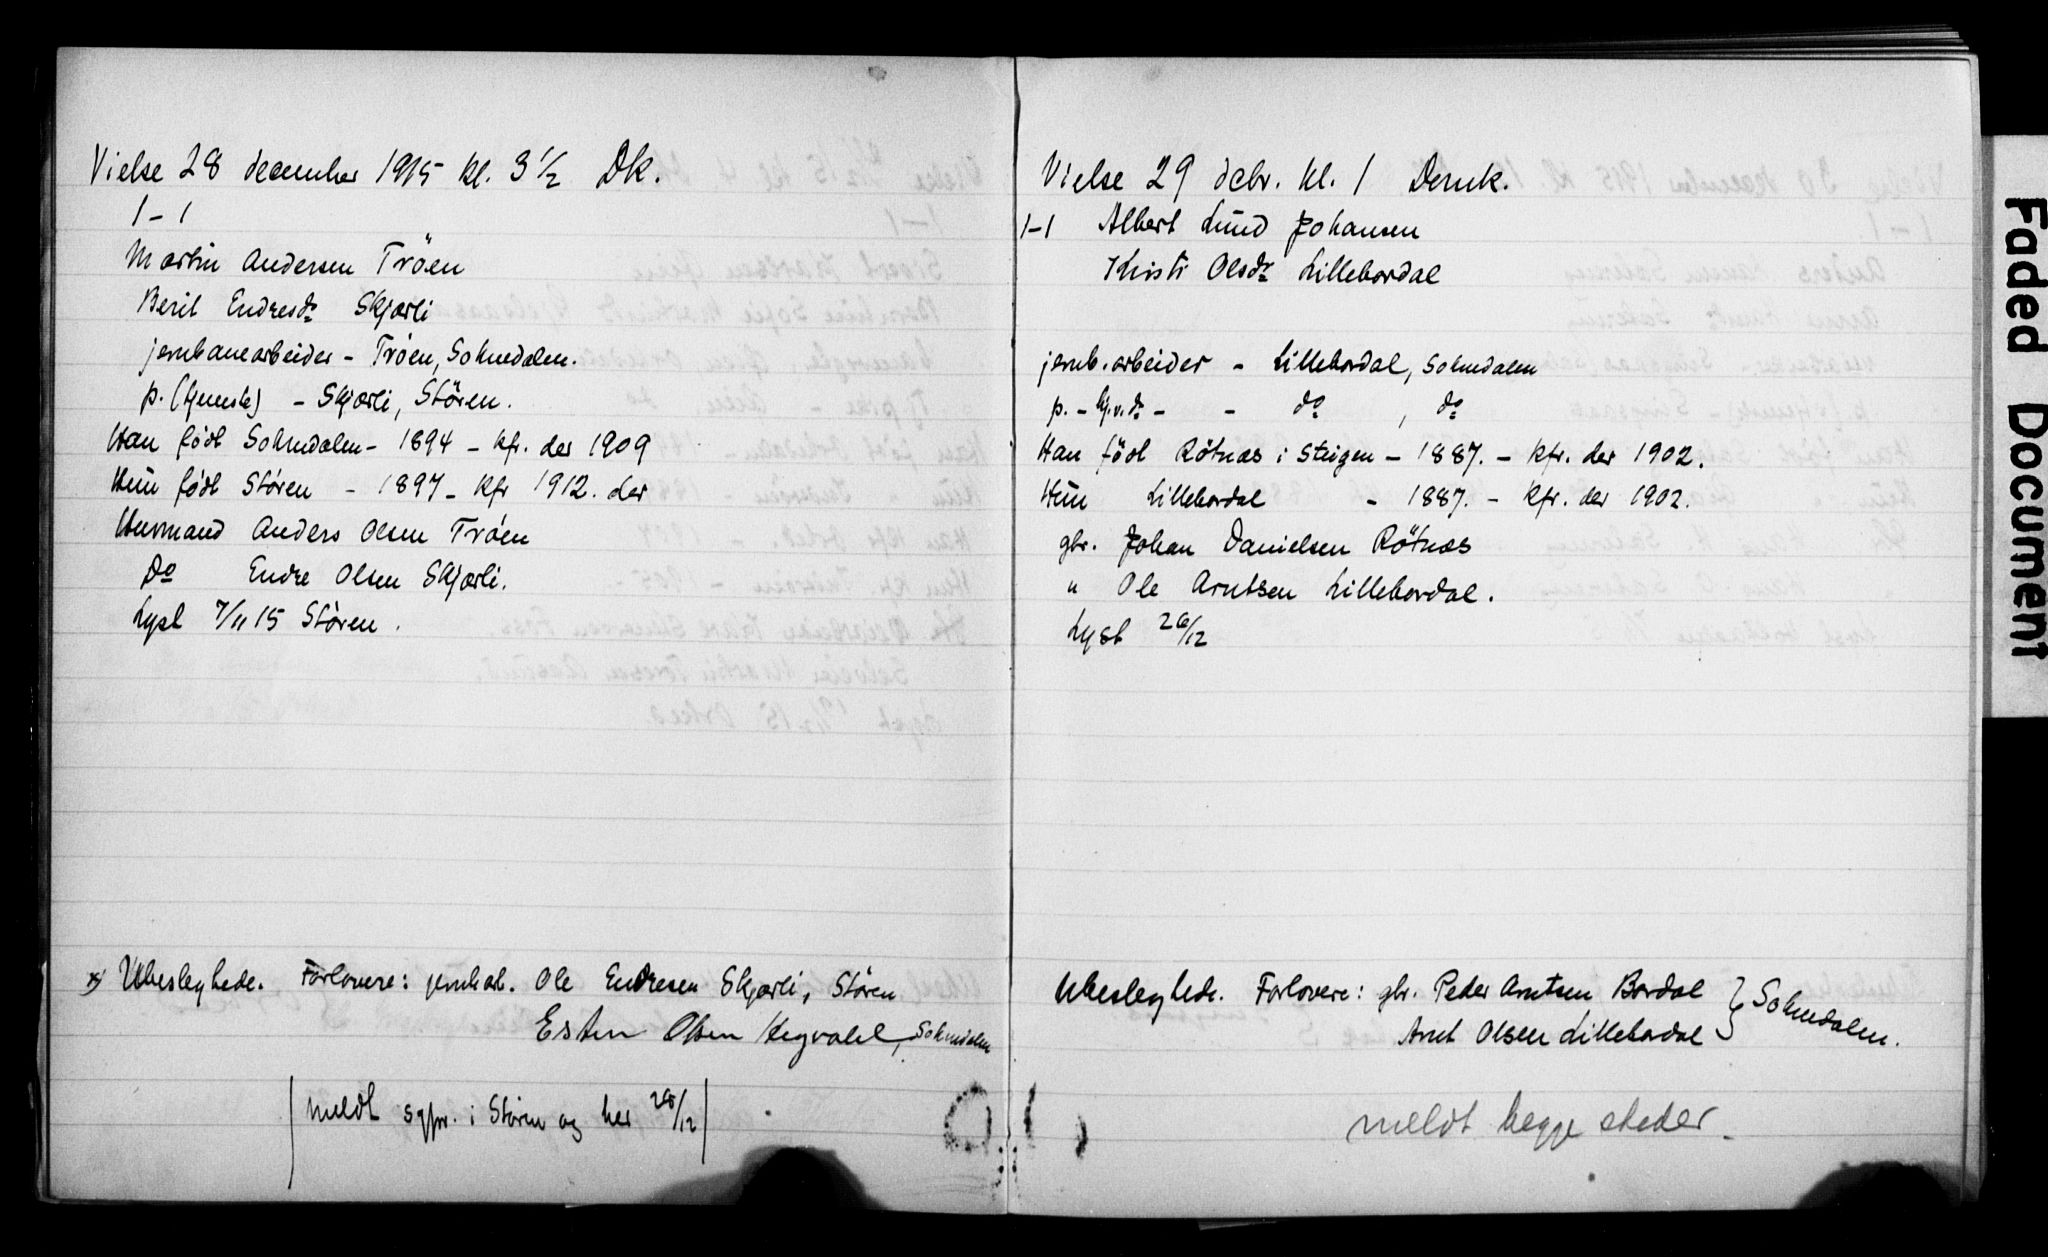 Vielse 28 december 1915 kl. 3 1/2 Dk.
1-1
Martin Andersen Tröen
Berit Endresdr Skjærli
jernbanearbeider - Tröen, Soknedalen.
p. (tjeneste) - Skjærli, Stören.
Han födt Soknedalen - 1894 - kfr. der 1909
Hun födt Stören - 1897 - kfr 1912. der
Husmand Anders Olsen Tröen
Do Endre Olsen Skjærli.
Lyst 7/11 15 Stören.
x) Ubeslegtede. Forlovere: jernbarb. Ole Endresen Skjærli, Stören
Esten Olsen Hegvold, Soknedalen
meldt sgpr. i Stören og her 28/12
Vielse 29 debr. kl. 1
1-1 Albert Lund Johansen
Kristi Olsdr Lillebordal
jernb.arbeider - Lillebordal, Soknedalen
p. - - do, do
Han födt Rötnæs i Steigen - 1887. - kfr. der 1902.
Hun Lillebordal - 1887. - kfr. der 1902.
gbr. Johan Danielsen Rötnæs
" Ole Arntsen Lillebordal.
Lyst 26/12
Ubeslegtede. Forlovere: gbr. Peder Arntsen Bordal } Soknedalen.
Arnt Olsen Lillebordal
meldt begge steder.
Faded Document